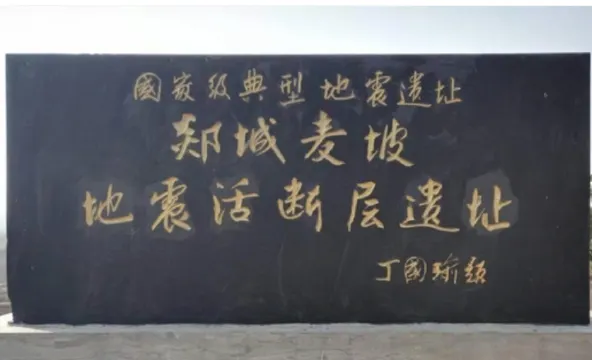 國家级典型地震遗址
郯城麦坡
地震活断层遗址
丁國瑜题